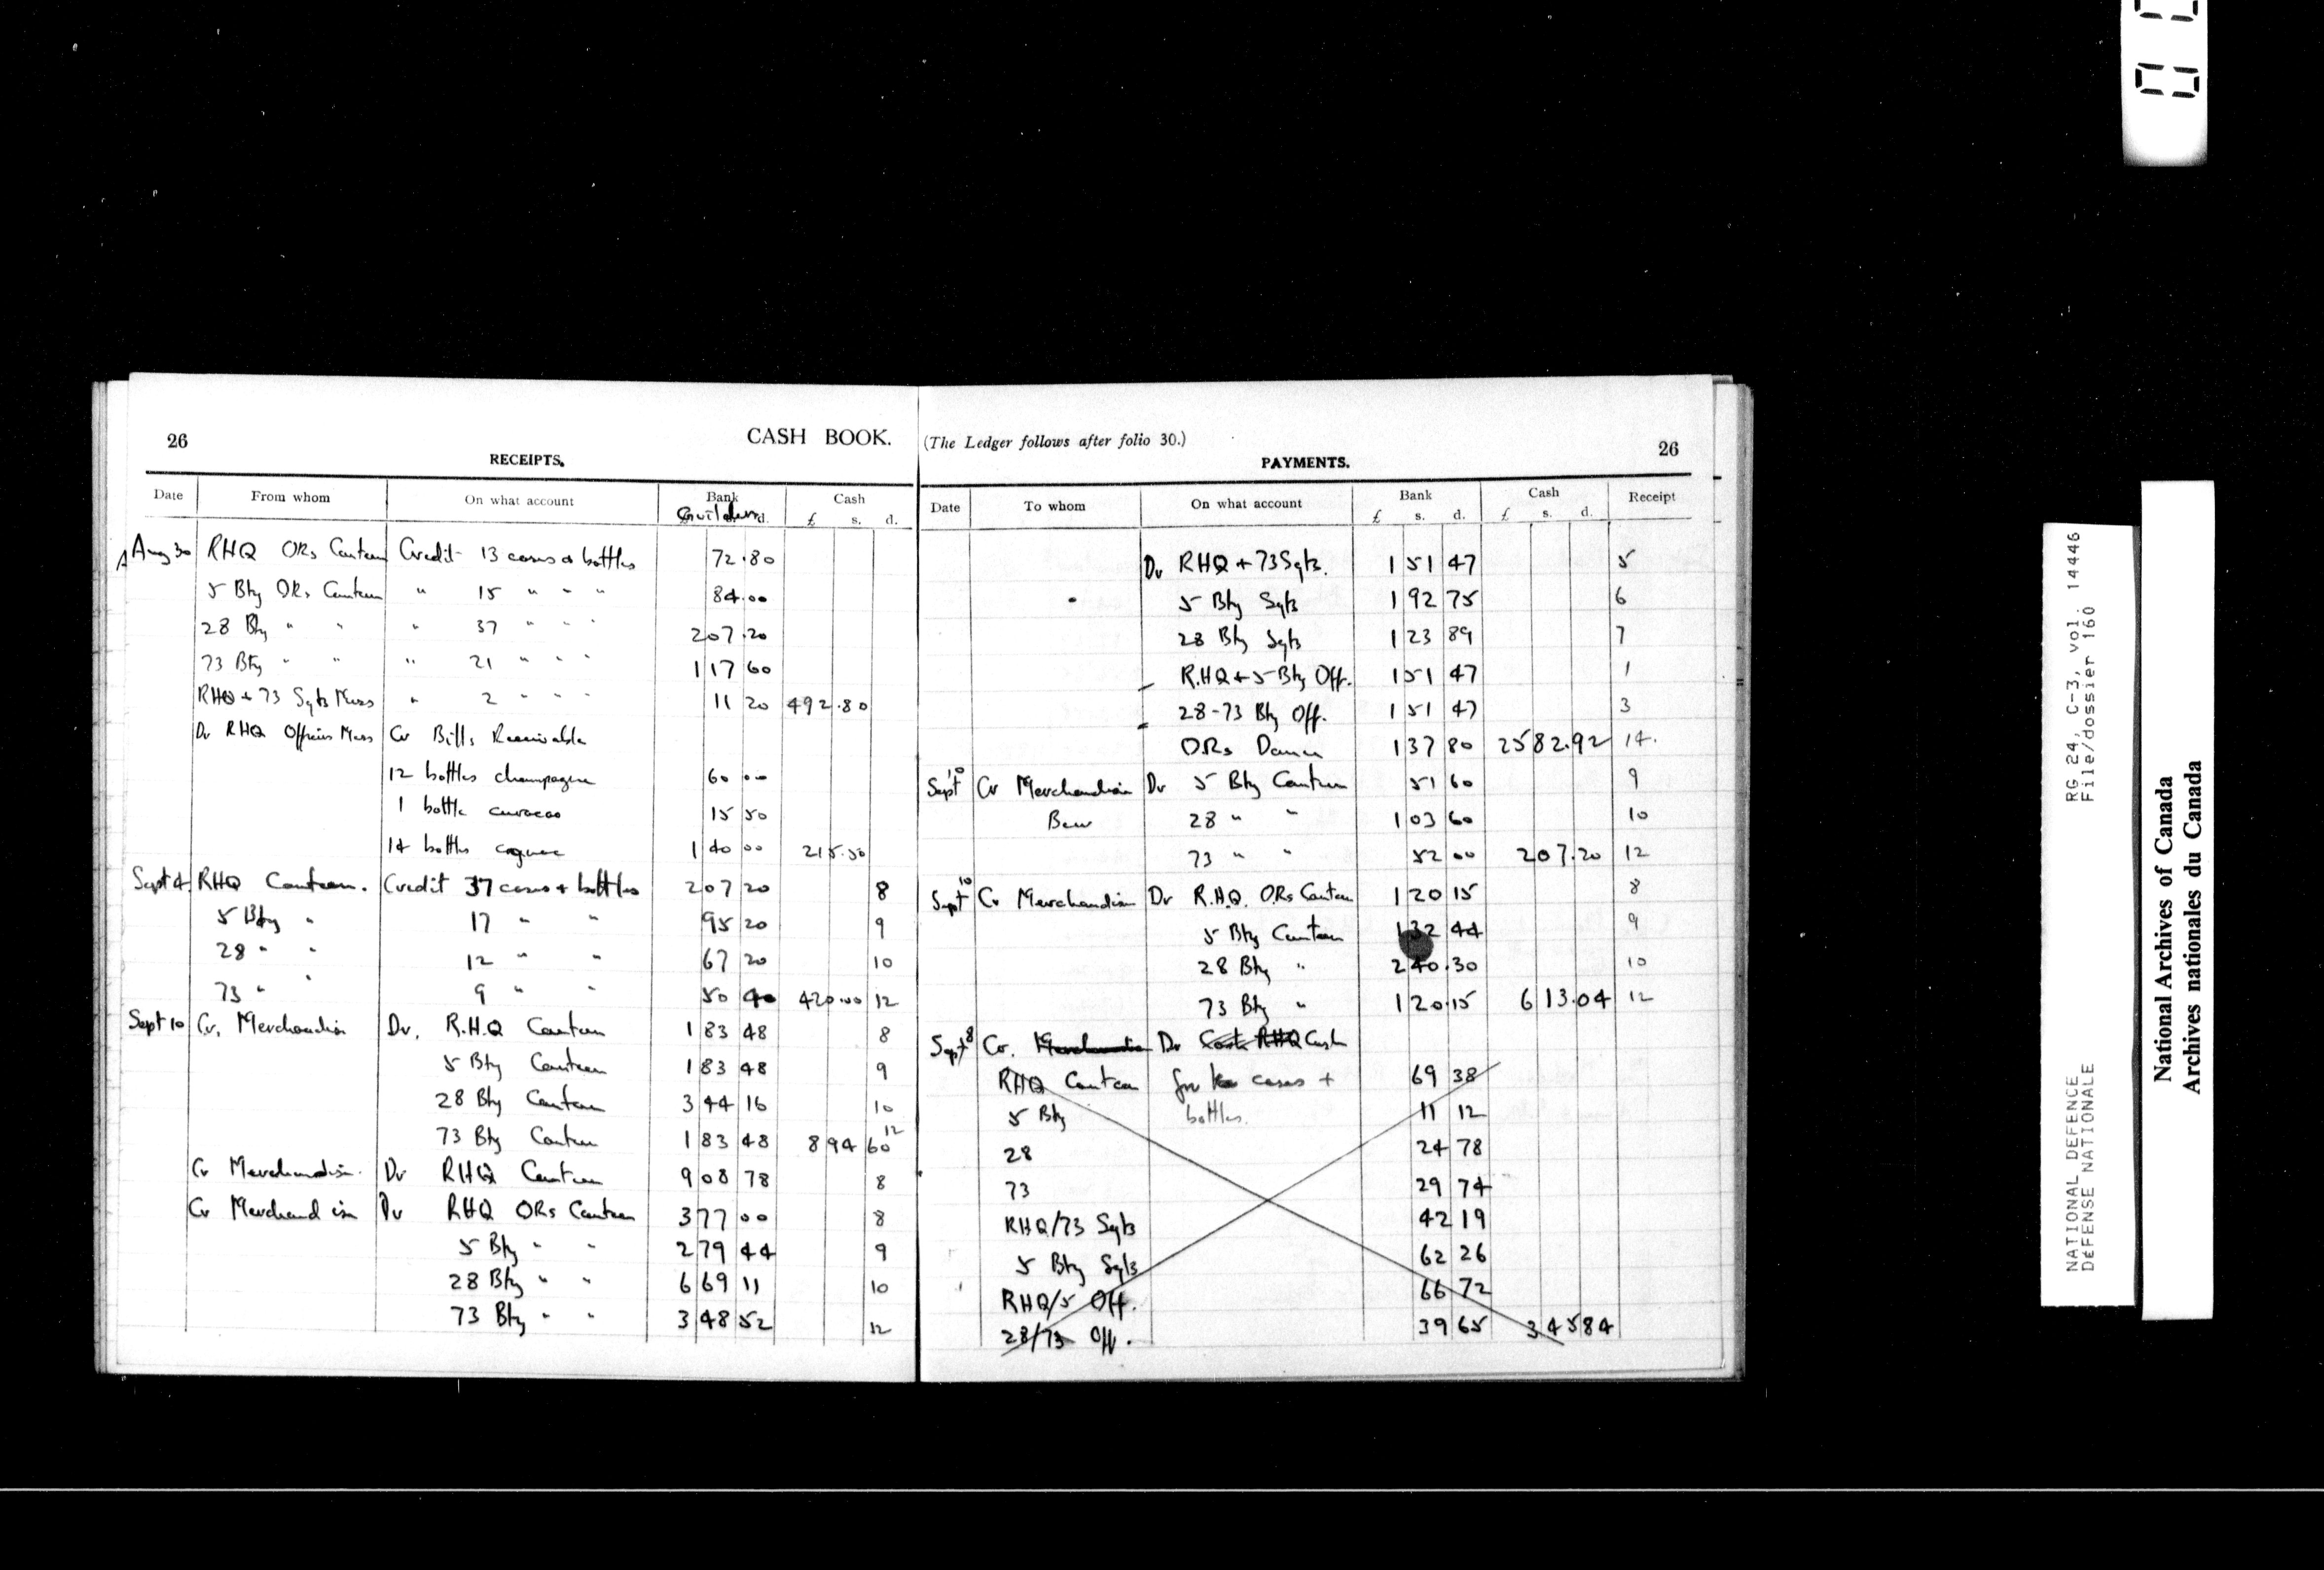 26
CASH BOOK.
RECEIPTS.
Date From whom On what account Bank Cash
Guilders d. £ s. d.
Aug 30 RHQ ORs Canteen Credit 13 cases & bottles 72.80
5 Bty ORs Canteen " 15 " " " 84.00
28 Bty " " " 37 " " " 207.20
73 Bty " " " 21 " " " 117 60
RHQ + 73 Sgts Mess " 2 " " " 11 20 492.80
Dr RHQ Officers Mess Cr Bills Receivable
12 bottles champagne 60 00
1 bottle curacao 15 50
14 bottles cognac 140 00 215.50
Sept 4 RHQ Canteen. Credit 37 cases + bottles 207 20 8
5 Bty " 17 " " 95 20 9
28 " " 12 " " 67 20 10
73 " " 9 " " 50 40 420.00 12
Sept 10 Cr. Merchandise Dr. R.H.Q Canteen 183 48 8
5 Bty Canteen 183 48 9
28 Bty Canteen 344 16 10
73 Bty Canteen 183 48 894 60 12
Cr Merchandise. Dr RHQ Canteen 908 78 8
Cr Merchandise Dr RHQ ORs Canteen 377 00 8
5 Bty " " 279 44 9
28 Bty " " 669 11 10
73 Bty " " 348 52 12
(The Ledger follows after folio 30.)
26
PAYMENTS.
Date To whom On what account Bank Cash Receipt
£ s. d. £ s. d.
Dr RHQ + 73 Sgts. 151 47 5
5 Bty Sgts 192 75 6
28 Bty Sgts 123 89 7
R.HQ + 5 Bty Off. 151 47 1
28-73 Bty Off. 151 47 3
ORs Dance 137 80 2582.92 14.
Sept 10 Cr Merchandise Dr 5 Bty Canteen 51 60 9
Beer 28 " " 103 60 10
73 " " 52 00 207.20 12
Sept 10 Cr Merchandise Dr R.H.Q. ORs Canteen 120 15 8
5 Bty Canteen 132 44 9
28 Bty " 240.30 10
73 Bty " 120.15 613.04 12
Sept 8 Cr. Merchandise Dr RHQ Cash
RHQ Canteen for cases + 69 38
5 Bty bottles. 11 12
28 24 78
73 29 74
RHQ/73 Sgts 42 19
5 Bty Sgts 62 26
RHQ/5 Off. 66 72
28/73 Off. 39 65 345 84
RG 24, C-3, vol. 14446
File/dossier 160
NATIONAL DEFENCE
DÉFENSE NATIONALE
National Archives of Canada
Archives nationales du Canada